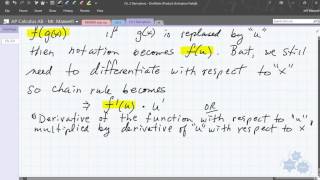 AP Calculus AB - Mr. Maxwell
f(g(x)) if g(x) is replaced by "u"
then notation becomes f(u). But, we still
need to differentiate with respect to "x"
so chain rule becomes
⇒ f'(u) · u' OR
"Derivative of the function with respect to "u",
multiplied by derivative of "u" with respect to x